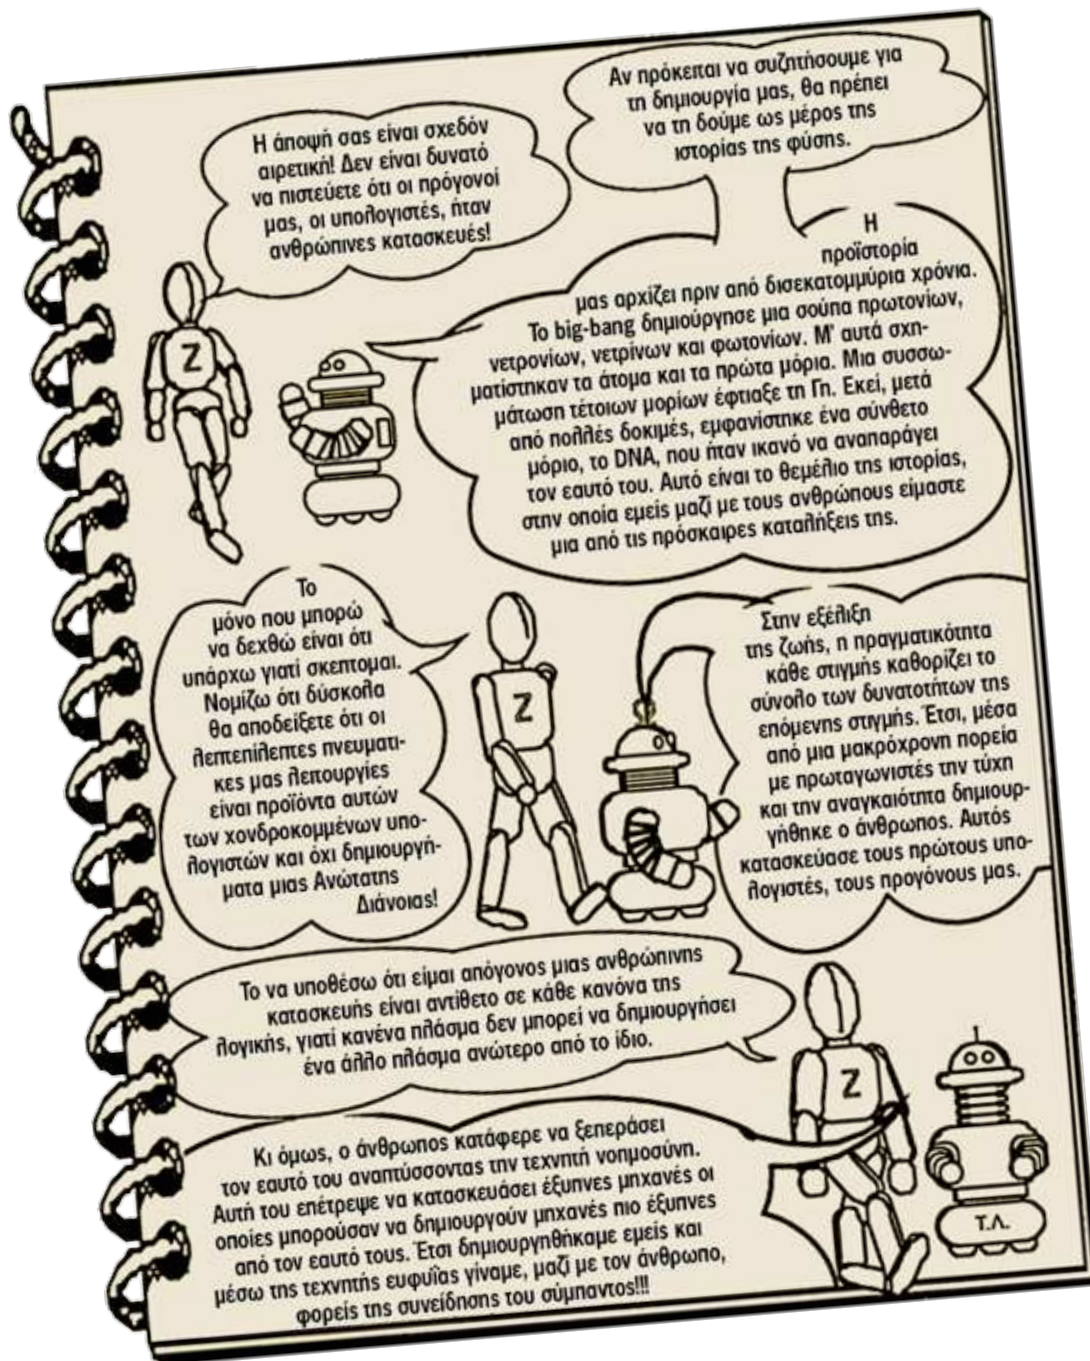 Αν πρόκειται να συζητήσουμε για
τη δημιουργία μας, θα πρέπει
να τη δούμε ως μέρος της
ιστορίας της φύσης.
Η άποψή σας είναι σχεδόν
αιρετική! Δεν είναι δυνατό
να πιστεύετε ότι οι πρόγονοί
μας, οι υπολογιστές, ήταν
ανθρώπινες κατασκευές!
Η
προϊστορία
μας αρχίζει πριν από δισεκατομμύρια χρόνια.
Το big-bang δημιούργησε μια σούπα πρωτονίων,
νετρονίων, νετρίνων και φωτονίων. Μ' αυτά σχη-
ματίστηκαν τα άτομα και τα πρώτα μόρια. Μια συσσω-
μάτωση τέτοιων μορίων έφτιαξε τη Γη. Εκεί, μετά
από πολλές δοκιμές, εμφανίστηκε ένα σύνθετο
μόριο, το DNA, που ήταν ικανό να αναπαράγει
τον εαυτό του. Αυτό είναι το θεμέλιο της ιστορίας,
στην οποία εμείς μαζί με τους ανθρώπους είμαστε
μια από τις πρόσκαιρες καταλήξεις της.
Z
Το
μόνο που μπορώ
να δεχθώ είναι ότι
υπάρχω γιατί σκεπτομαι.
Νομίζω ότι δύσκολα
θα αποδείξετε ότι οι
λεπτεπίλεπτες πνευματι-
κες μας λειτουργίες
είναι προϊόντα αυτών
των χονδροκομμένων υπο-
λογιστών και όχι δημιουργή-
ματα μιας Ανώτατης
Διάνοιας!
Z
Στην εξέλιξη
της ζωής, η πραγματικότητα
κάθε στιγμής καθορίζει το
σύνολο των δυνατοτήτων της
επόμενης στιγμής. Έτσι, μέσα
από μια μακρόχρονη πορεία
με πρωταγωνιστές την τύχη
και την αναγκαιότητα δημιουρ-
γήθηκε ο άνθρωπος. Αυτός
κατασκεύασε τους πρώτους υπο-
λογιστές, τους προγόνους μας.
Το να υποθέσω ότι είμαι απόγονος μιας ανθρώπινης
κατασκευής είναι αντίθετο σε κάθε κανόνα της
λογικής, γιατί κανένα πλάσμα δεν μπορεί να δημιουργήσει
ένα άλλο πλάσμα ανώτερο από το ίδιο.
Z
Κι όμως, ο άνθρωπος κατάφερε να ξεπεράσει
τον εαυτό του αναπτύσσοντας την τεχνητή νοημοσύνη.
Αυτή του επέτρεψε να κατασκευάσει έξυπνες μηχανές οι
οποίες μπορούσαν να δημιουργούν μηχανές πιο έξυπνες
από τον εαυτό τους. Έτσι δημιουργηθήκαμε εμείς και
μέσω της τεχνητής ευφυΐας γίναμε, μαζί με τον άνθρωπο,
φορείς της συνείδησης του σύμπαντος!!!
Τ.Λ.